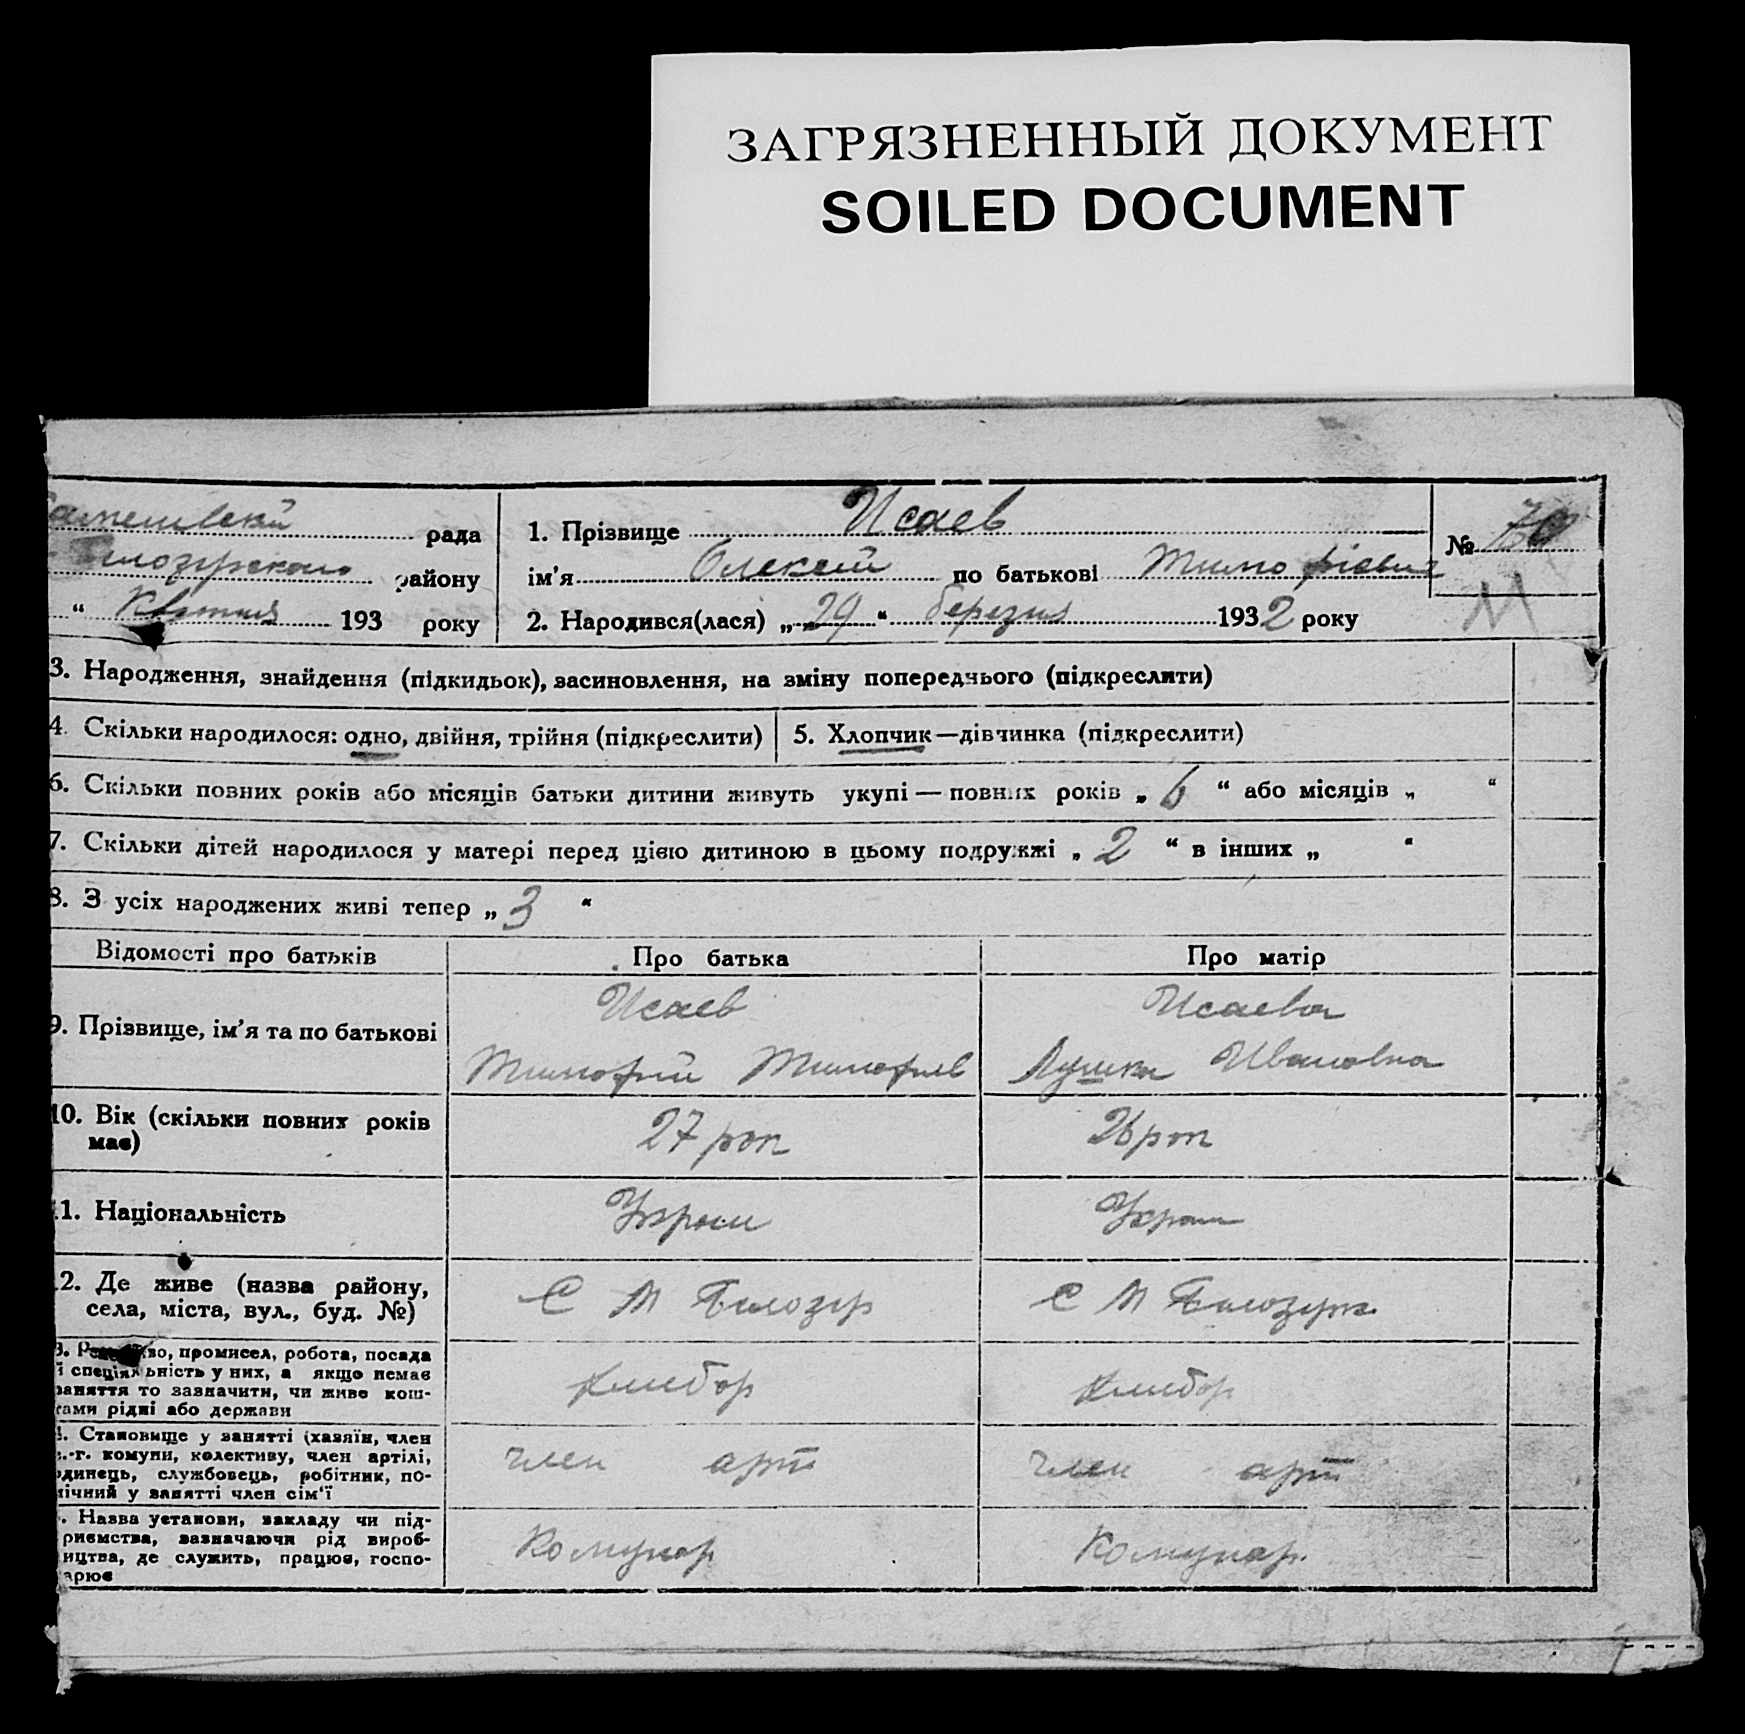 ЗАГРЯЗНЕННЫЙ ДОКУМЕНТ
SOILED DOCUMENT
рада
району
“ Квітня 193 року
1. Прізвище Исаев
ім’я Олексій по батькові Тимофієвич
2. Народився(лася) „ 29 “ березня 1932 року
№ 70
М
3. Народження, знайдення (підкидьок), засиновлення, на зміну попереднього (підкреслити)
4. Скільки народилося: одно, двійня, трійня (підкреслити)
5. Хлопчик—дівчинка (підкреслити)
6. Скільки повних років або місяців батьки дитини живуть укупі — повних років „ 6 “ або місяців „ “
7. Скільки дітей народилося у матері перед цією дитиною в цьому подружжі „ 2 “ в інших „ “
8. З усіх народжених живі тепер „ 3 “
Відомості про батьків Про батька Про матір
9. Прізвище, ім’я та по батькові
Исаев
Тимофій Тимофієв
Исаева
Лушка Ивановна
10. Вік (скільки повних років має)
27 рок
26 рок
11. Національність
Украи
Украи
12. Де живе (назва району,
села, міста, вул., буд. №)
С М Білозер
С М
промисел, робота, посада
й спеціальність у них, а якщо немає
заняття то зазначити, чи живе кош-
тами рідні або держави
хлибор
хлибор
Становище у занятті (хазяїн, член
с.-г. комуни, колективу, член артілі,
одинець, службовець, робітник, по-
мічний у занятті член сім’ї
член арт
член арт
Назва установи, закладу чи під-
приємства, зазначаючи рід вироб-
ництва, де служить, працює, госпо-
дарює
Комунар
Комунар.